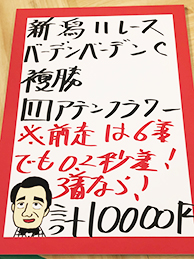 新潟11レース
バーデンバーデンC
複勝
⑪アデンフラワー
※前走は6着
でも0.2秒差!
3着なら!
計10000円